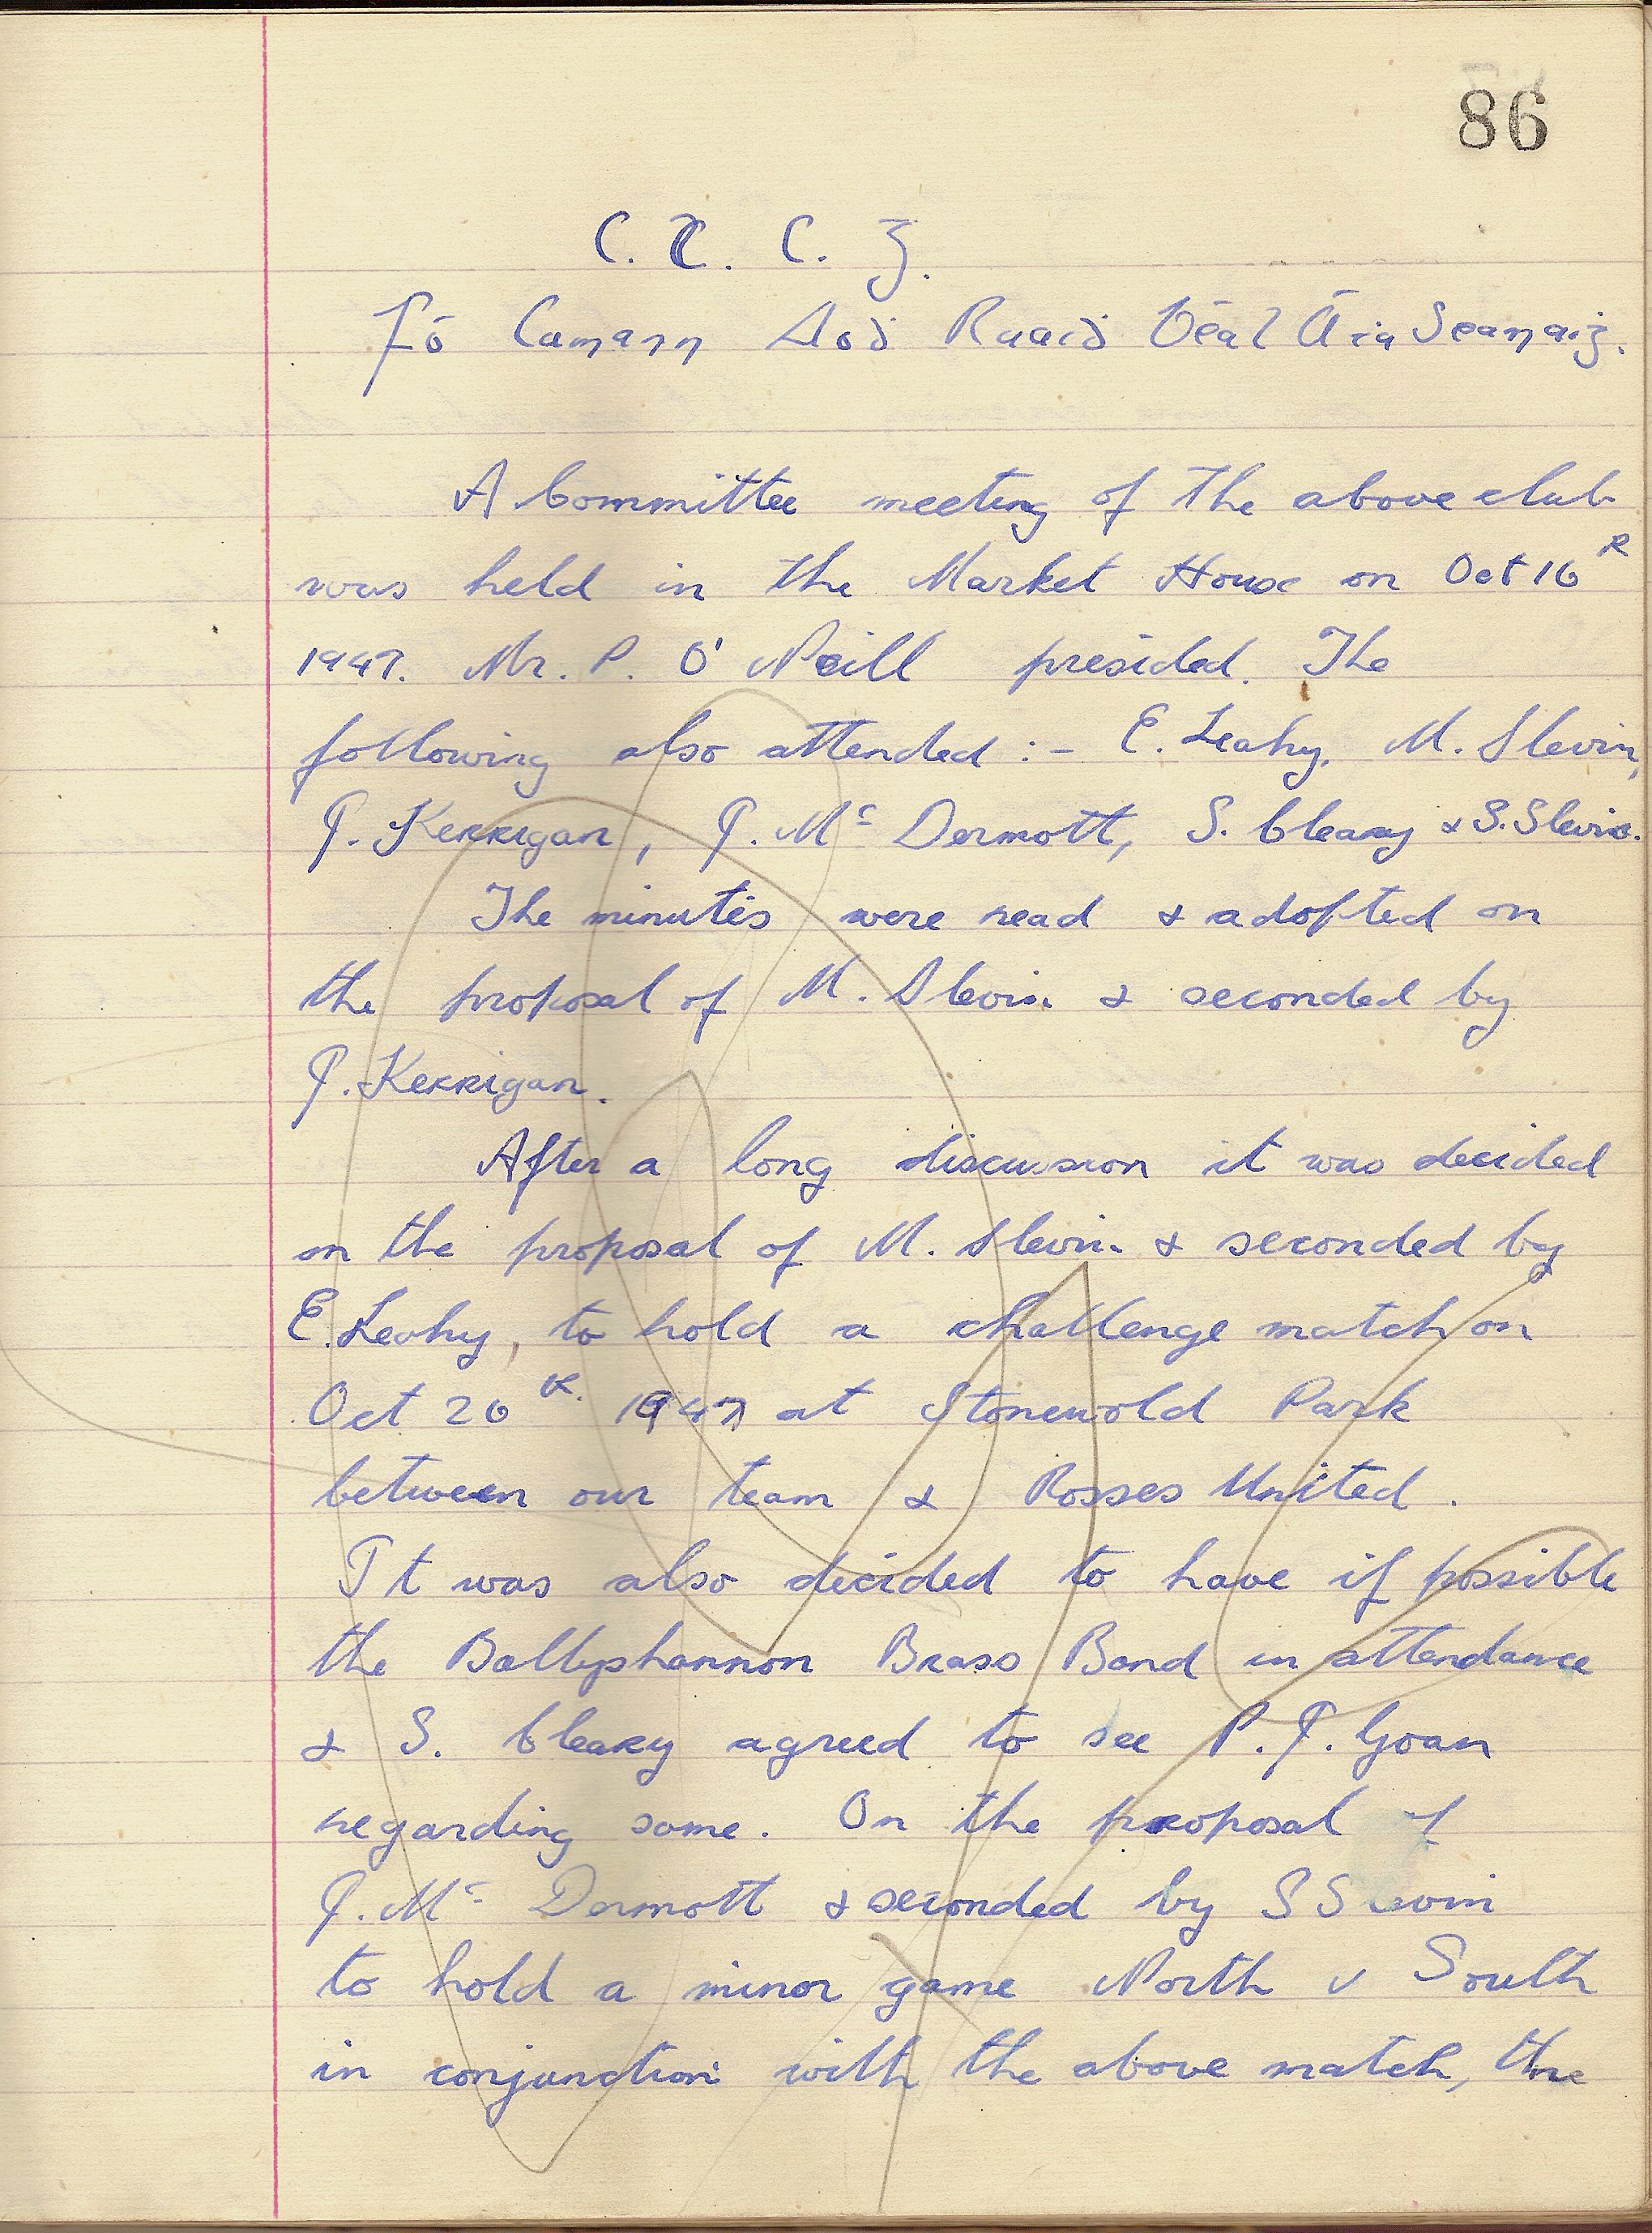 86
C. C. C. G.
Fó Cumann Aoḋ Ruaiḋ Béal Áṫa Seanaiġ.
A Committee meeting of the above club
was held in the Market House on Oct 16th
1947. Mr. P. O'Neill presided. The
following also attended :- E. Leahy, M. Slevin,
J. Kerrigan, J. Mc Dermott, S. Cleary & S. Slevin.
The minutes were read & adopted on
the proposal of M. Slevin & seconded by
J. Kerrigan.
After a long discussion it was decided
on the proposal of M. Slevin & seconded by
E. Leahy, to hold a challenge match on
Oct 26th. 1947 at Stonewold Park
between our team & Rosses United.
It was also decided to have if possible
the Ballyshannon Brass Band in attendance
& S. Cleary agreed to see P. J. Goan
regarding same. On the proposal of
J. Mc Dermott & seconded by S Slevin
to hold a minor game North v South
in conjunction with the above match, the